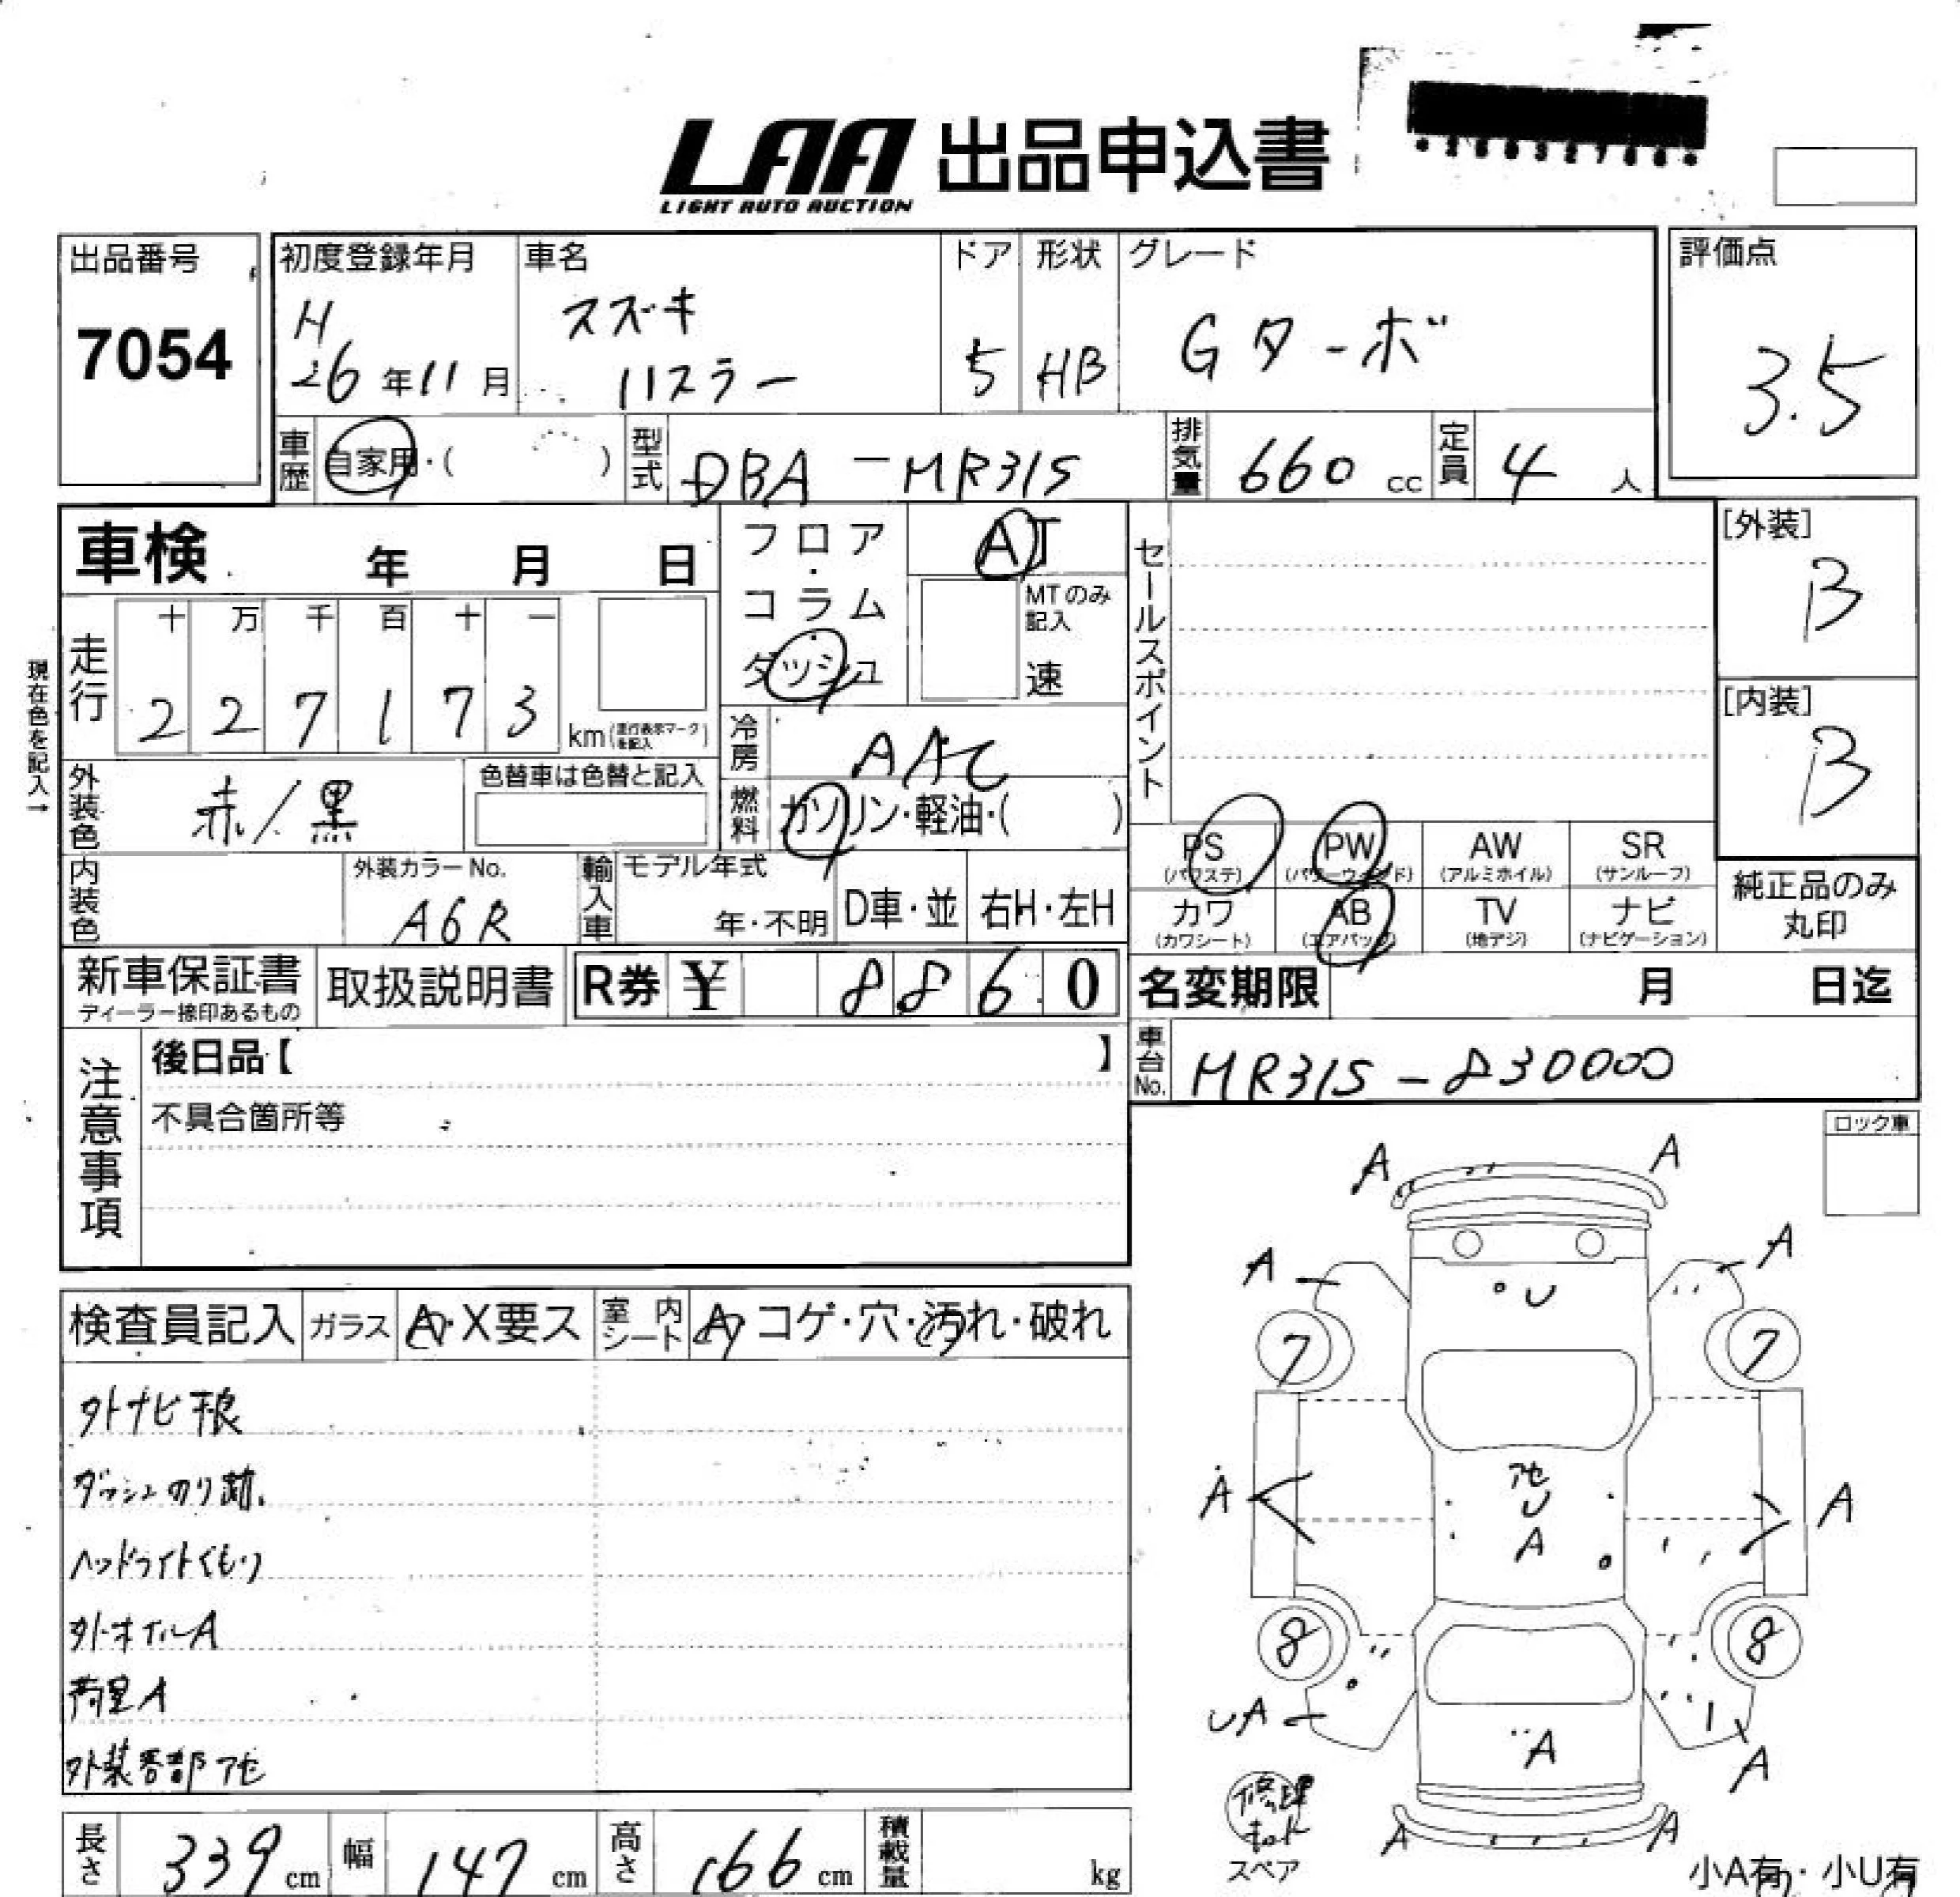 LAA 出品申込書
LIGHT AUTO AUCTION
出品番号
7054
初度登録年月
H
26年11月
車名
スズキ
ハスラー
ドア
5
形状
HB
グレード
Gターボ
評価点
3.5
車歴 自家用・( )
型式 DBA-MR31S
排気量 660 cc
定員 4 人
車検 年 月 日
フロア・コラム・ダッシュ
AT
MTのみ記入
速
セールスポイント
[外装]
B
[内装]
B
現在色を記入→
走行
十 万 千 百 十 一
2 2 7 1 7 3 km(走行表示マークを記入)
冷房 AAC
燃料 ガソリン・軽油・( )
外装色 赤/黒
色替車は色替と記入
内装色
外装カラーNo.
A6R
輸入車
モデル年式
年・不明
D車・並
右H・左H
PS (パワステ)
PW (パワーウィンド)
AW (アルミホイル)
SR (サンルーフ)
カワ (カワシート)
AB (エアバッグ)
TV (地デジ)
ナビ (ナビゲーション)
純正品のみ丸印
新車保証書
ディーラー捺印あるもの
取扱説明書
R券 ¥ 8860
名変期限 月 日迄
車台No. MR31S-830000
注意事項
後日品【 】
不具合箇所等
ロック車
検査員記入
ガラス A・X要ス
室内シート A・コゲ・穴・汚れ・破れ
外ナビ痕
ダッシュのり跡.
ヘッドライトくもり
外ホイルA
荷室A
外装各部アセ
A A
A A
U
7 7
アセ
U
A
A A
8 8
UA
A
A
A A
修理キット
スペア
小A有・小U有
長さ 339 cm
幅 147 cm
高さ 166 cm
積載量 kg